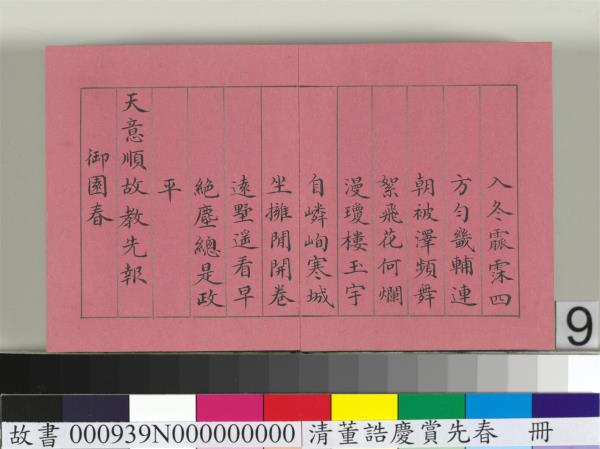 入冬霢霂四
方勻畿輔連
朝被澤頻舞
絮飛花何爛
漫瓊樓玉宇
自嶙峋寒城
坐擁閒開卷
遠墅遥看早
絶塵總是政
平
天意順故教先報
御園春
9
故書 000939N000000000 清董誥慶賞先春 冊